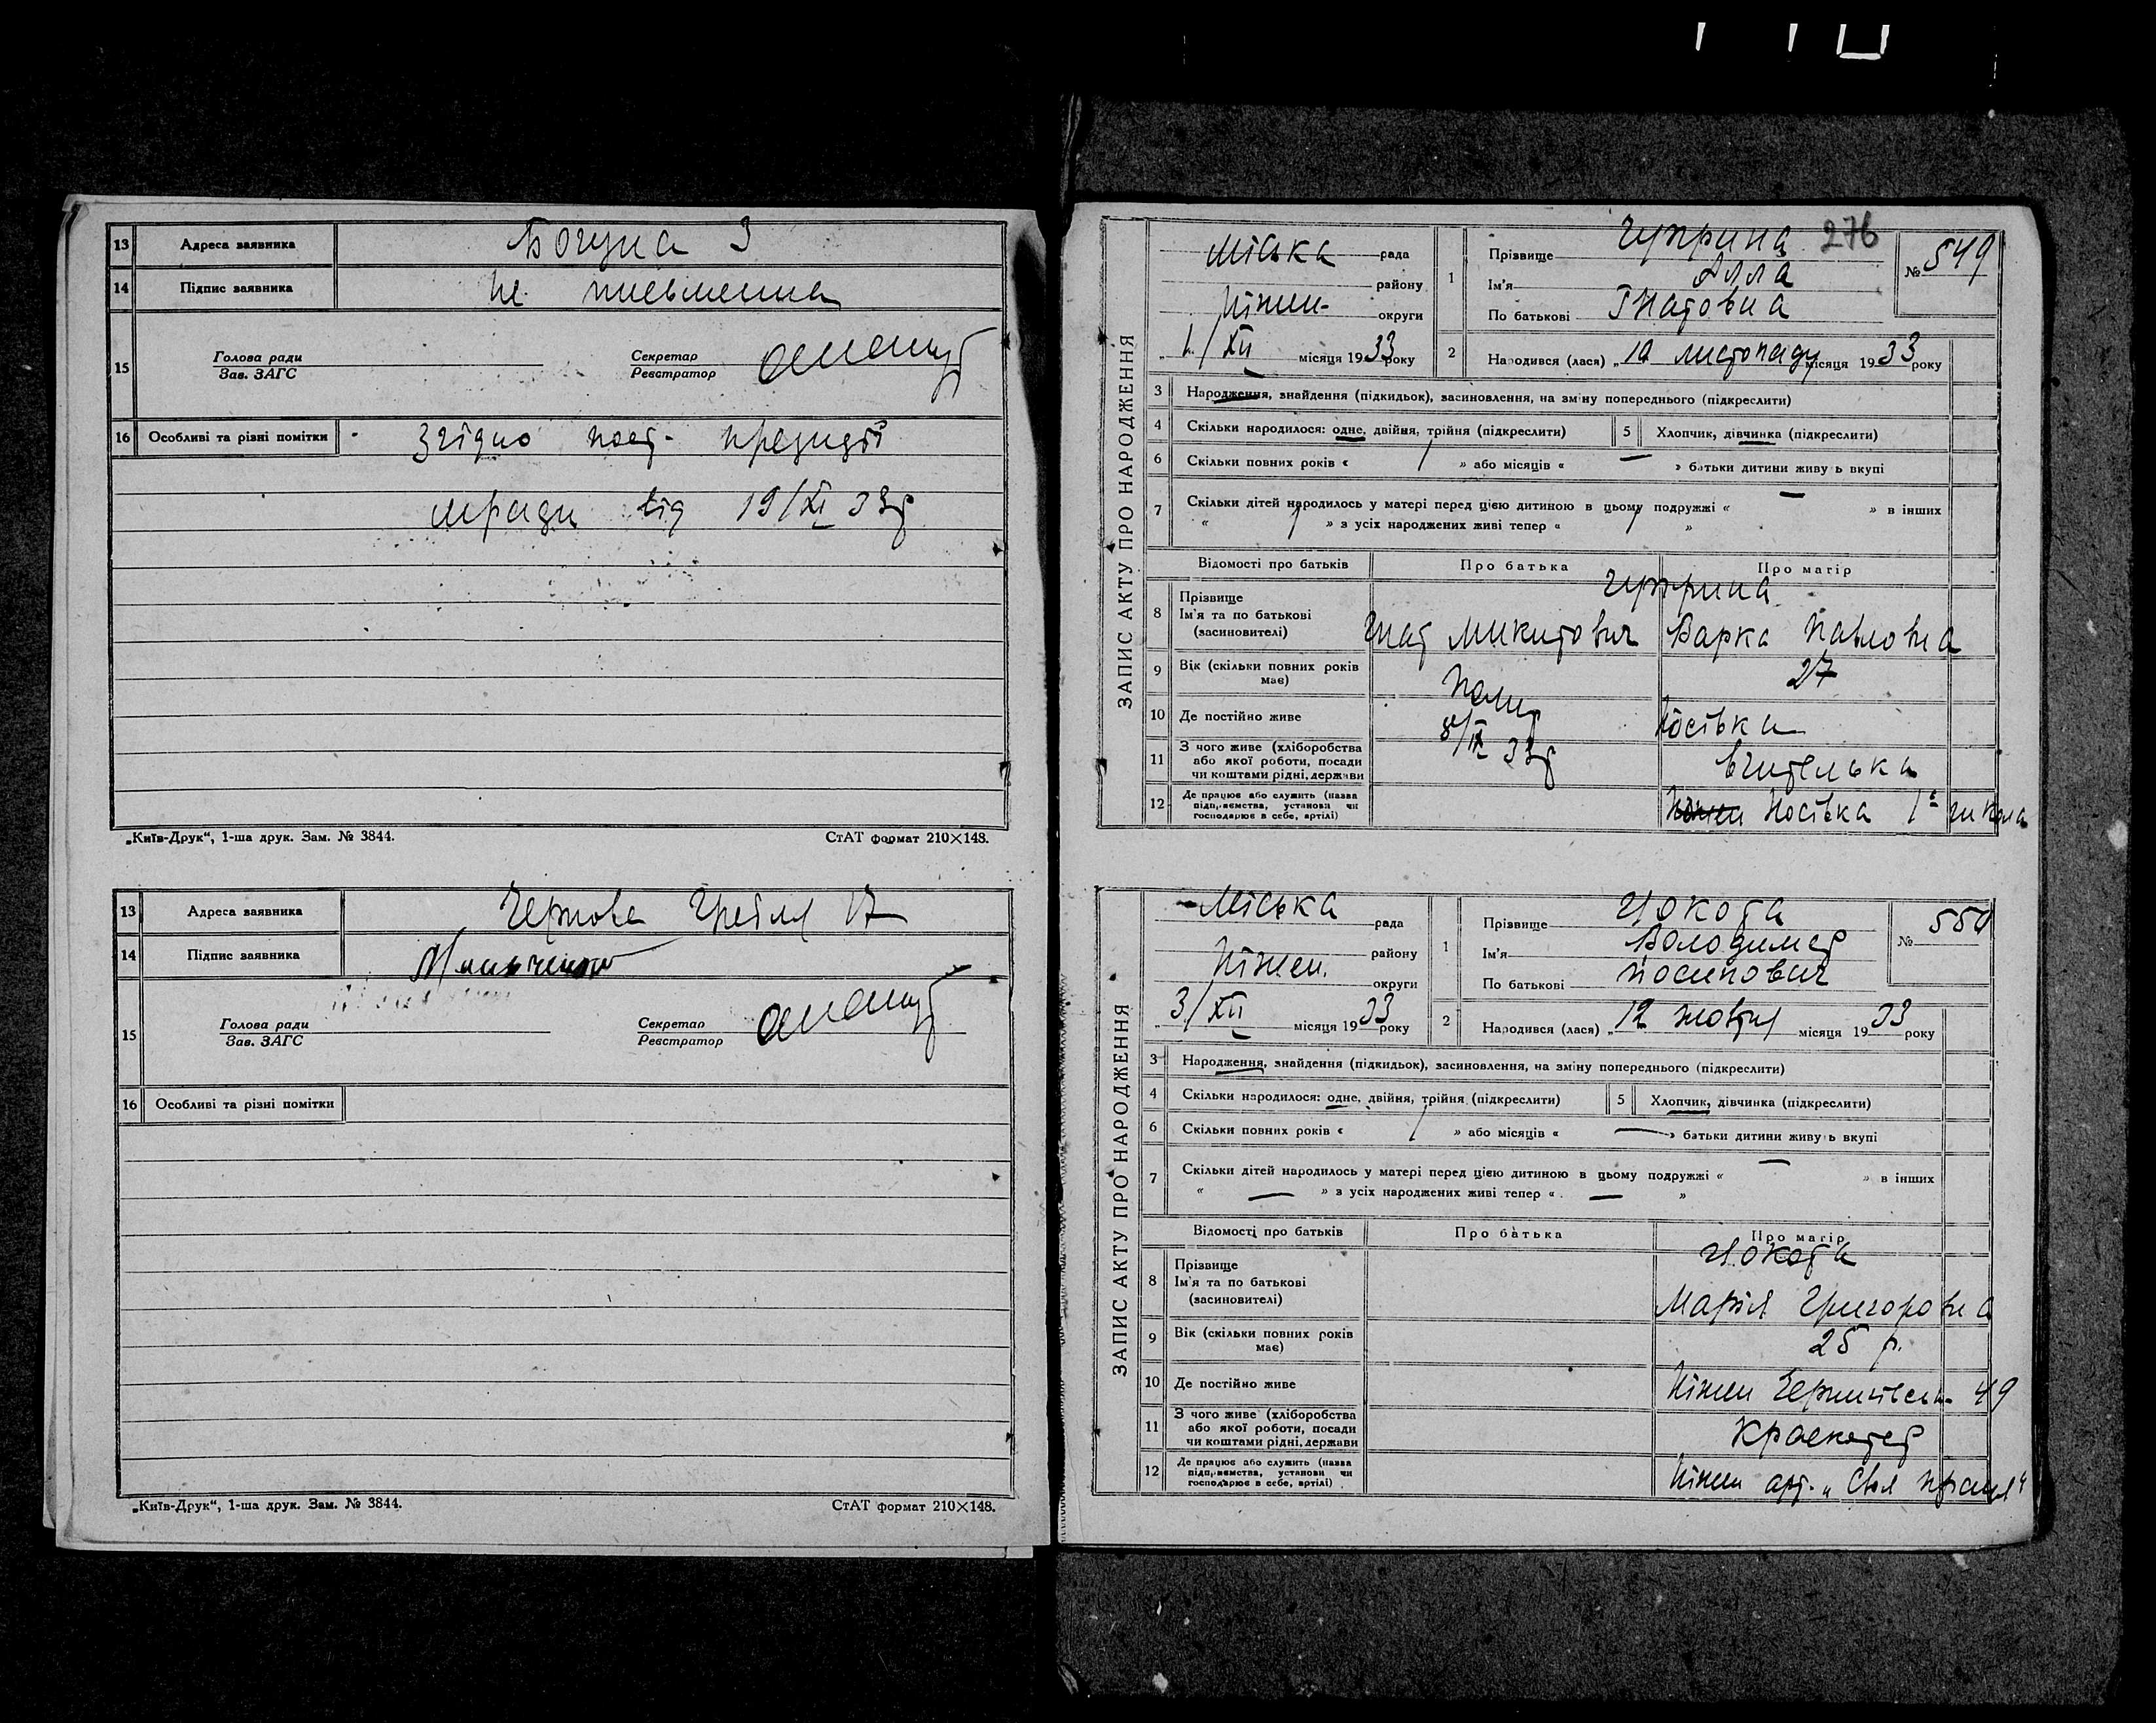 13 Адреса заявника Богуна 3
14 Підпис заявника не письменна
15 Голова ради Зав. ЗАГС Секретар Реєстратор
16 Особливі та різні помітки Згідно пост. президії
мради від 19/XI 33р
„Київ-Друк“, 1-ша друк. Зам. № 3844. СтАТ формат 210×148.
13 Адреса заявника 17
14 Підпис заявника
15 Голова ради Зав. ЗАГС Секретар Реєстратор
16 Особливі та різні помітки
„Київ-Друк“, 1-ша друк. Зам. № 3844. СтАТ формат 210×148.
276
ЗАПИС АКТУ ПРО НАРОДЖЕННЯ
Міська рада
району
Ніжин- округи
„ 1/XII місяця 1933 року
1 Прізвище Чуприна
Ім'я Алла
По батькові Гнатовна
№ 549
2 Народився (лася) „ 19 листопаду місяця 1933 року
3 Народження, знайдення (підкидьок), засиновлення, на зміну попереднього (підкреслити)
4 Скільки народилося: одне, двійня, трійня (підкреслити) 5 Хлопчик, дівчинка (підкреслити)
6 Скільки повних років « / » або місяців « — » батьки дитини живуть вкупі
7 Скільки дітей народилось у матері перед цією дитиною в цьому подружжі « — » в інших
« / » з усіх народжених живі тепер « / »
Відомості про батьків Про батька Про матір
8 Прізвище Чуприна
Ім'я та по батькові (засновителі) Гнат Микитович Варка Павловна
9 Вік (скільки повних років має) Помер 27
10 Де постійно живе 8/IX 33р Носівка
11 З чого живе (хліборобства або якої роботи, посади чи коштами рідні, держави Вчителька
12 Де працює або служить (назва підприємства, установи чи господарює в себе, артілі) Ніжен Носівка 1ª школа
ЗАПИС АКТУ ПРО НАРОДЖЕННЯ
Міська рада
району
Ніжен. округи
„ 3/XII місяця 1933 року
1 Прізвище Цокота
Ім'я Володимер
По батькові Йосипович
№ 550
2 Народився (лася) „ 12 жовтня місяця 1933 року
3 Народження, знайдення (підкидьок), засиновлення, на зміну попереднього (підкреслити)
4 Скільки народилося: одне, двійня, трійня (підкреслити) 5 Хлопчик, дівчинка (підкреслити)
6 Скільки повних років « / » або місяців « — » батьки дитини живуть вкупі
7 Скільки дітей народилось у матері перед цією дитиною в цьому подружжі « — » в інших
« — » з усіх народжених живі тепер « — »
Відомості про батьків Про батька Про матір
8 Прізвище Цокота
Ім'я та по батькові (засиновителі) Марія Григоровна
9 Вік (скільки повних років має) 25 р.
10 Де постійно живе Ніжен Чернигівськ. 49
11 З чого живе (хліборобства або якої роботи, посади чи коштами рідні, держави
12 Де працює або служить (назва підприємства, установи чи господарює в себе, артілі) Ніжен арт. „ Своя праця“